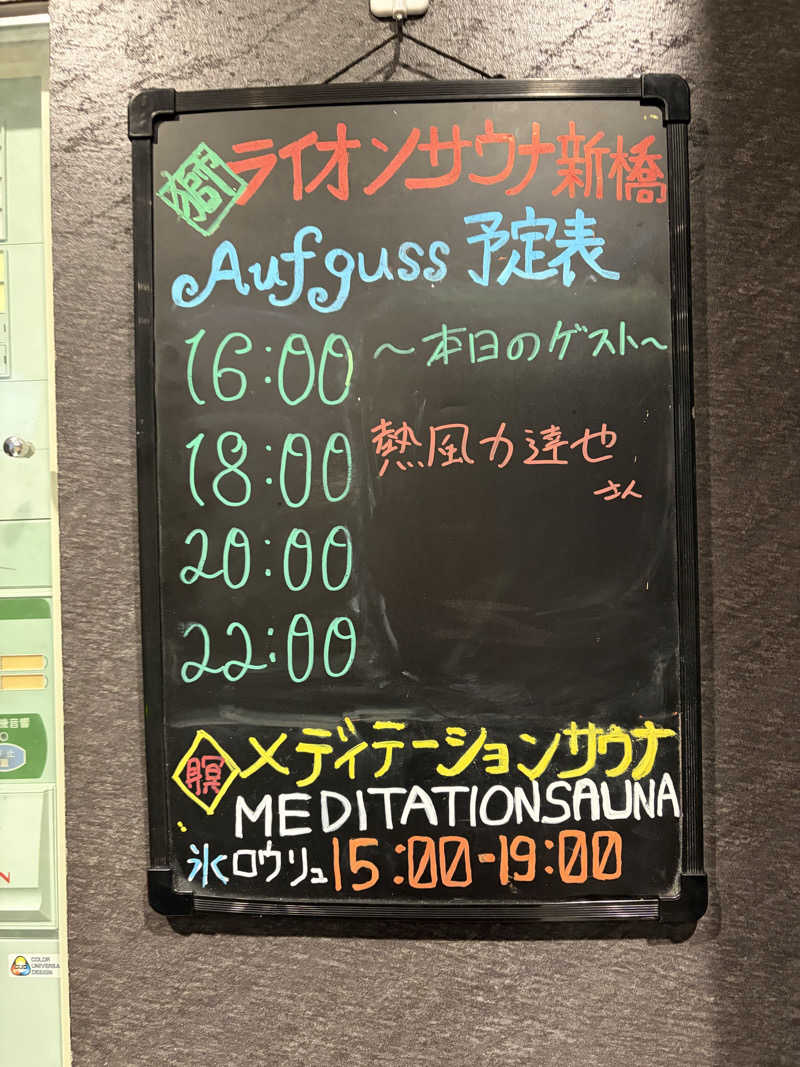 獅 ライオンサウナ新橋
Aufguss 予定表
16:00 〜本日のゲスト〜
18:00 熱風力達也
さん
20:00
22:00
メディテーションサウナ
MEDITATIONSAUNA
氷ロウリュ 15:00-19:00
COLOR
UNIVERSA
DESIGN